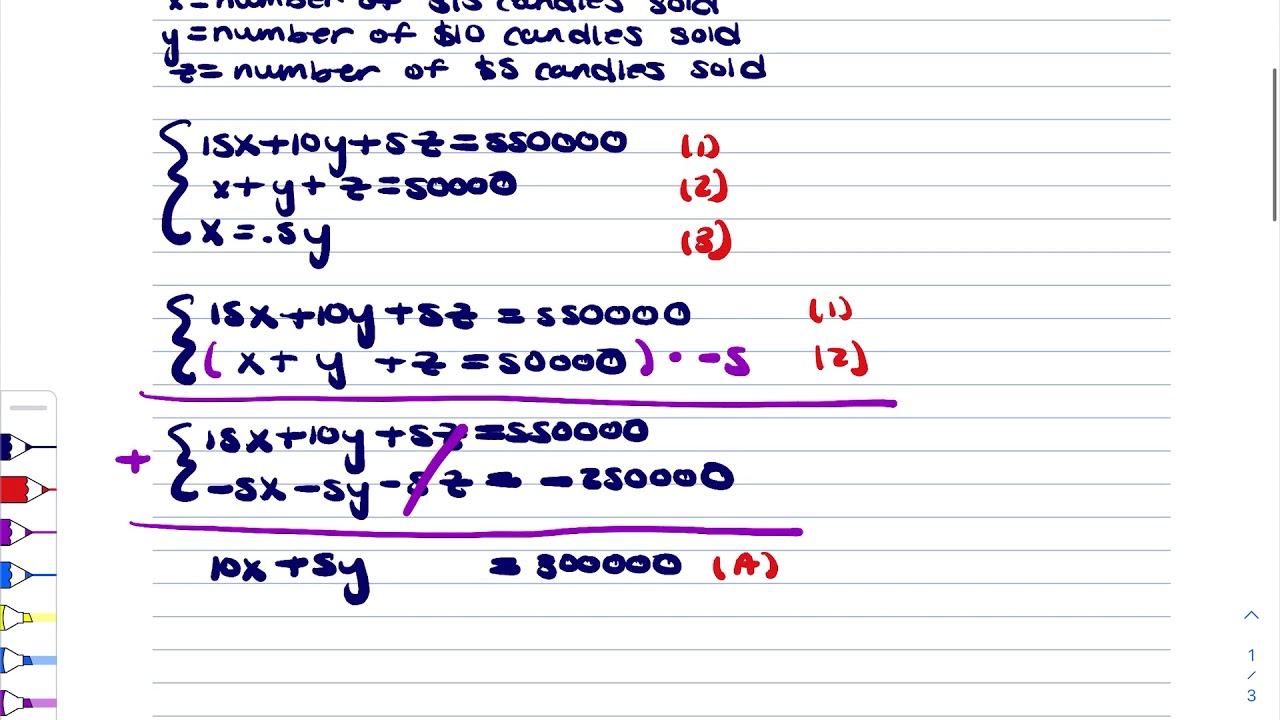 x=number of $15 candles sold
y=number of $10 candles sold
z=number of $5 candles sold
15x+10y+5z=550000 (1)
x+y+z=50000 (2)
x=.5y (3)
15x+10y+5z=550000 (1)
(x+y+z=50000)·-5 (2)
15x+10y+5z=550000
+
-5x-5y-5z=-250000
10x+5y =300000 (A)
^
1
/
3